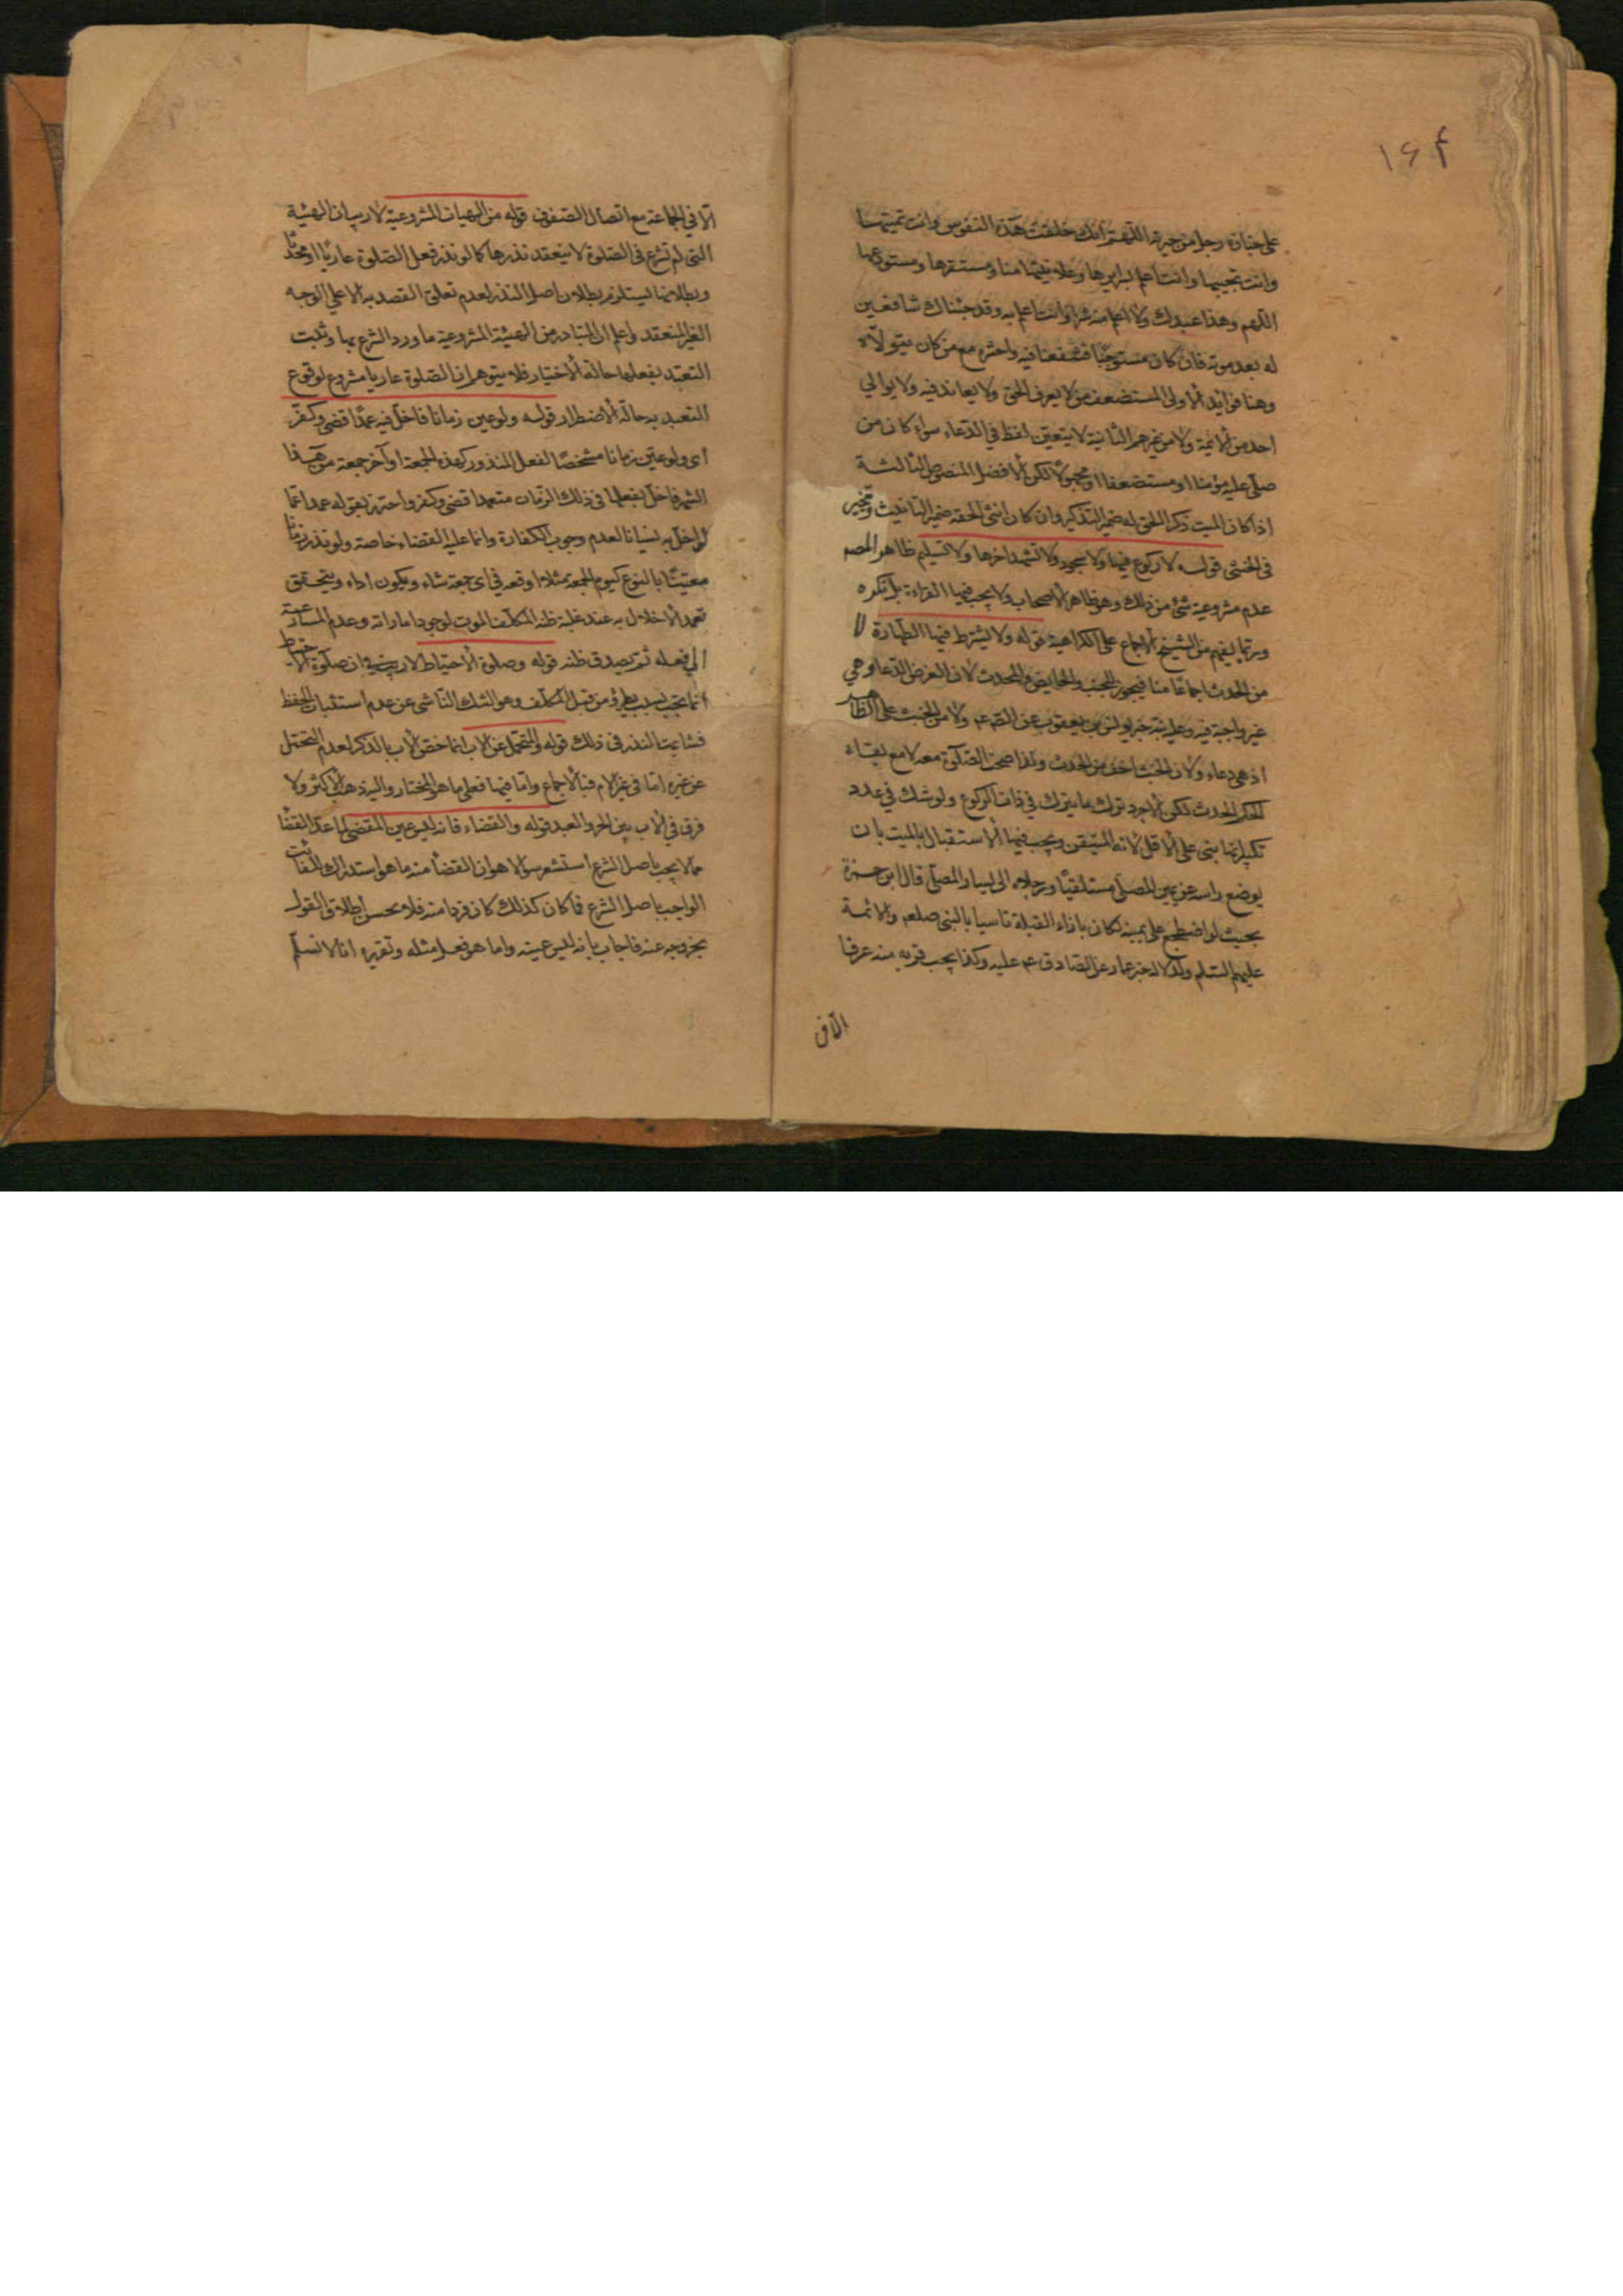 ١٦٤
على جنازة رجل من جيرته اللهم انك خلقت هذه النفوس وانت تميتها
وانت تحييها وانت اعلم بسرايرها وعلانيتها منا ومستقرها ومستودعها
اللهم وهذا عبدك ولا اعلم منه شرا وانت اعلم به وقد جئناك شافعين
له بعد موته فان كان مستوجبا فشفعنا فيه واحشره مع من كان يتولاه
وهنا فوائد الاولى المستضعف من لا يعرف الحق ولا يعاند فيه ولا يوالي
احد من الائمة ولا من غيرهم الثانية لا يتعين لفظ في الدعاء سواء كان من
صلى عليه مؤمنا او مستضعفا او مجهولا لكن الافضل المنصوص الثالثة
اذا كان الميت ذكر الحق له ضمير التذكير وان كان انثى الحقه ضمير التانيث وتخير
في الخنثى قوله لا ركوع فيها ولا سجود ولا تشهد اخرها ولا تسليم ظاهر المصه
عدم مشروعية شئ من ذلك وهو ظاهر الاصحاب ولا يجب فيها القراءة بل تكره
وربما يفهم من الشيخ الاجماع على الكراهية قوله ولا يشترط فيها الطهارة لا
من الحدث اجماعا منا فيجوز للجنب والحايض والمحدث لان الغرض الدعا وهي
غير واجبة فيه وعليه نبه خبر يونس بن يعقوب عن الصم ولا من الخبث على الظاهر
اذ هي دعاء ولان الخبث اخف من الحدث ولذا صحت الصلوة معه لا مع بقاء
حكم الحدث لكن الاجود ترك ما يترك في ذات الركوع ولو شك في عدد
تكبيراتها بنى على الاقل لانه المتيقن ويجب فيها الاستقبال بالميت بان
يوضع راسه عن يمين المصلى مستلقيا ورجلاه الى يسار المصلى قال ابن حمزة
بحيث لو اضطجع على يمينه لكان بازاء القبلة تاسيا بالنبى صلعم والائمة
عليهم السلم ولدلالة خبر عمار عن الصادق عم عليه وكذا يجب قربه منه عرفا
الا في
الا في الجماعة مع اتصال الصفوف قوله من الهيات المشروعية لا ريب ان الهيئة
التى لم تشرع في الصلوة لا ينعقد نذرها كما لو نذر فعل الصلوة عاريا او محدثا
وبطلانها يستلزم بطلان اصل النذر لعدم تعلق القصد به الا على الوجه
الغير المنعقد واعلم ان المتبادر من الهيئة المشروعية ما ورد الشرع بها وثبت
التعبد بفعلها حالة الاختيار فلا يتوهم ان الصلوة عاريا مشروع لوقوع
التعبد به حالة الاضطرار قوله ولو عين زمانا فاخل فيه عمدا قضى وكفر
اى ولو عين زمانا مشخصا لفعل المنذور كهذه الجمعة او آخر جمعة من هذا
الشهر فاخل بفعلها في ذلك الزمان متعمدا قضى وكفر واحترز بقوله عمدا عما
لو اخل به نسيانا لعدم وجوب الكفارة وانما عليه القضاء خاصة ولو نذر زمانا
معينا بالنوع كيوم الجمعة مثلا اوقعه في اى جمعة شاء ويكون اداء ويتحقق
تعمد الاخلال به عند غلبة ظن المكلف الموت لوجود اماراته وعدم المسارعة
الى فعله ثم يصدق ظنه قوله وصلوة الاحتياط لا ريب ان صلوة الاحتياط
انما يجب بسبب يطرؤ من قبل المكلف وهو الشك الناشى عن عدم استثبات الحفظ
فشابهت النذر في ذلك قوله والمتحمل عن الاب انما خص الاب بالذكر لعدم التحمل
عن غيره اما في غير الام فبالاجماع واما فيها فعلى ما هو المختار واليه ذهب الاكثر ولا
فرق في الاب بين الحر والعبد قوله والقضاء فانه ليس عين المقضى لما عد القضا
مما لا يجب باصل الشرع استشعر سؤالا هو ان القضا منه ما هو استدراك للفائت
الواجب باصل الشرع فما كان كذلك كان فردا منه فلا يحسن اطلاق القول
بخروجه عنه فاجاب بانه ليس عينه وانما هو فعل مثله وتقريره انا لا نسلم